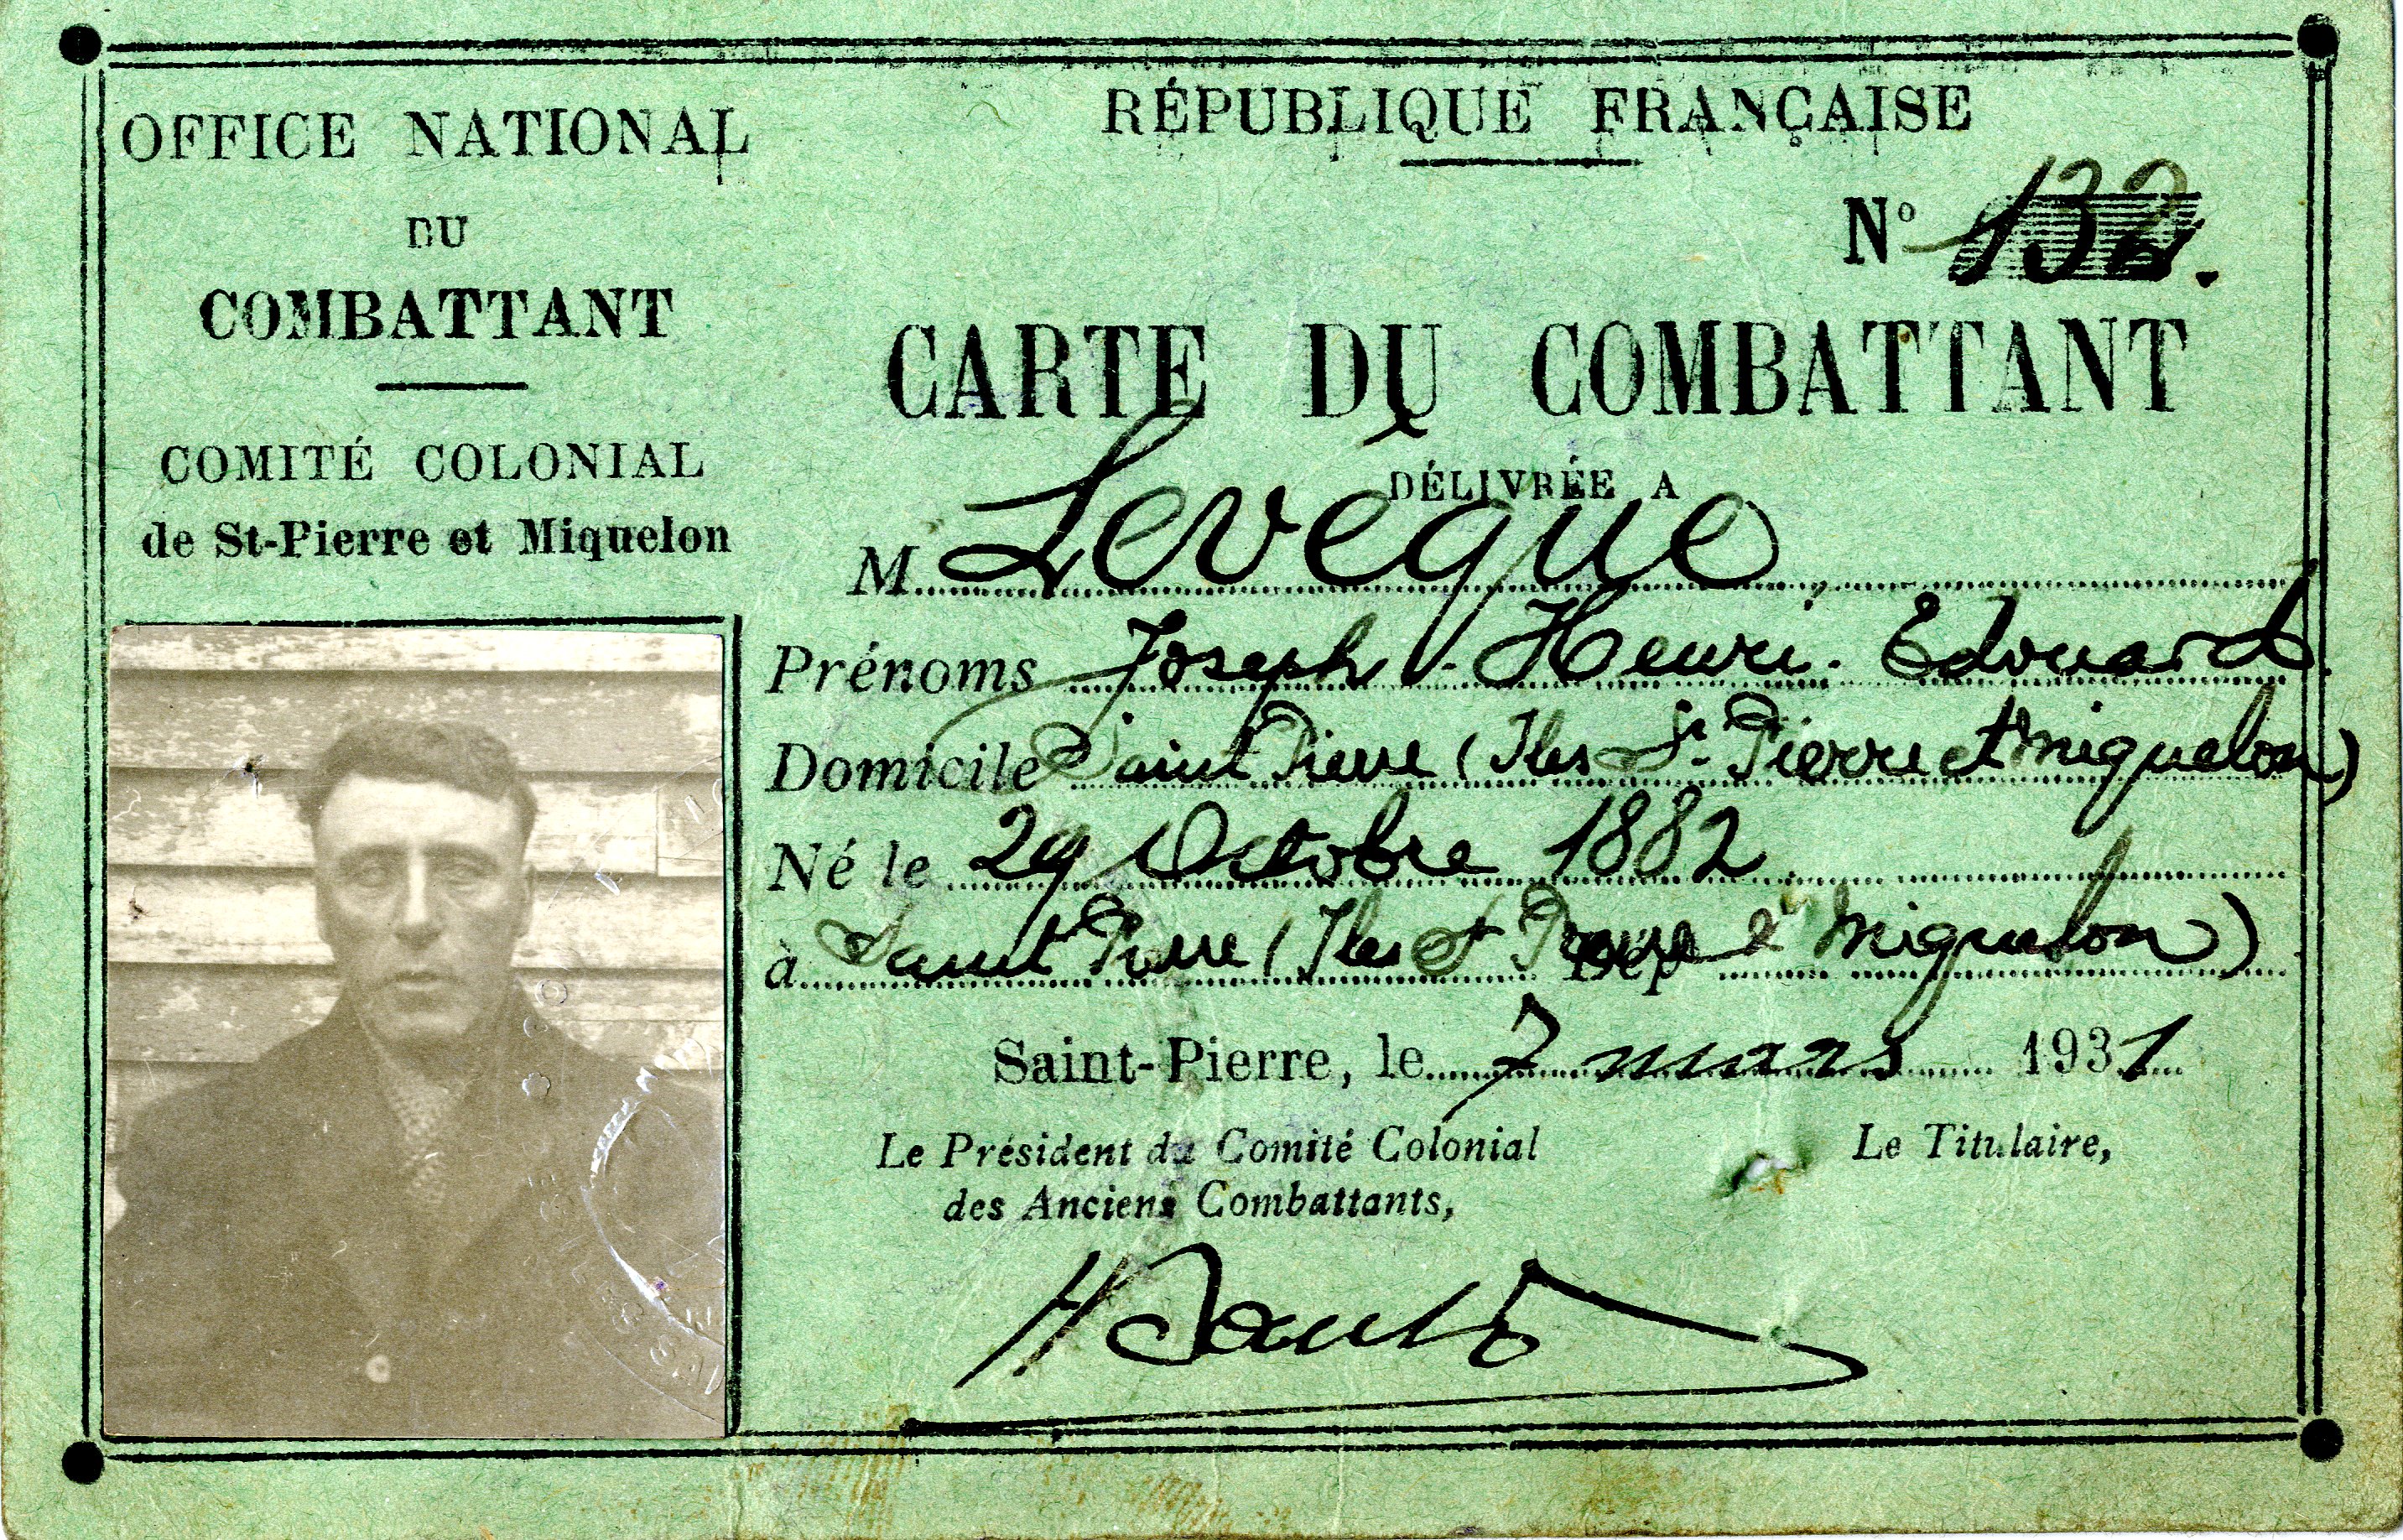 OFFICE NATIONAL
DU
COMBATTANT
COMITÉ COLONIAL
de St-Pierre et Miquelon
RÉPUBLIQUE FRANÇAISE
No 132.
CARTE DU COMBATTANT
DÉLIVRÉE A
M. Leveque
Prénoms Joseph - Henri - Edouard.
Domicile Saint Pierre (Iles St-Pierre et Miquelon)
Né le 29 Octobre 1882
à Saint Pierre (Iles St Pierre et Miquelon)
Saint-Pierre, le 7 mars 1931
Le Président du Comité Colonial
des Anciens Combattants,
Le Titulaire,